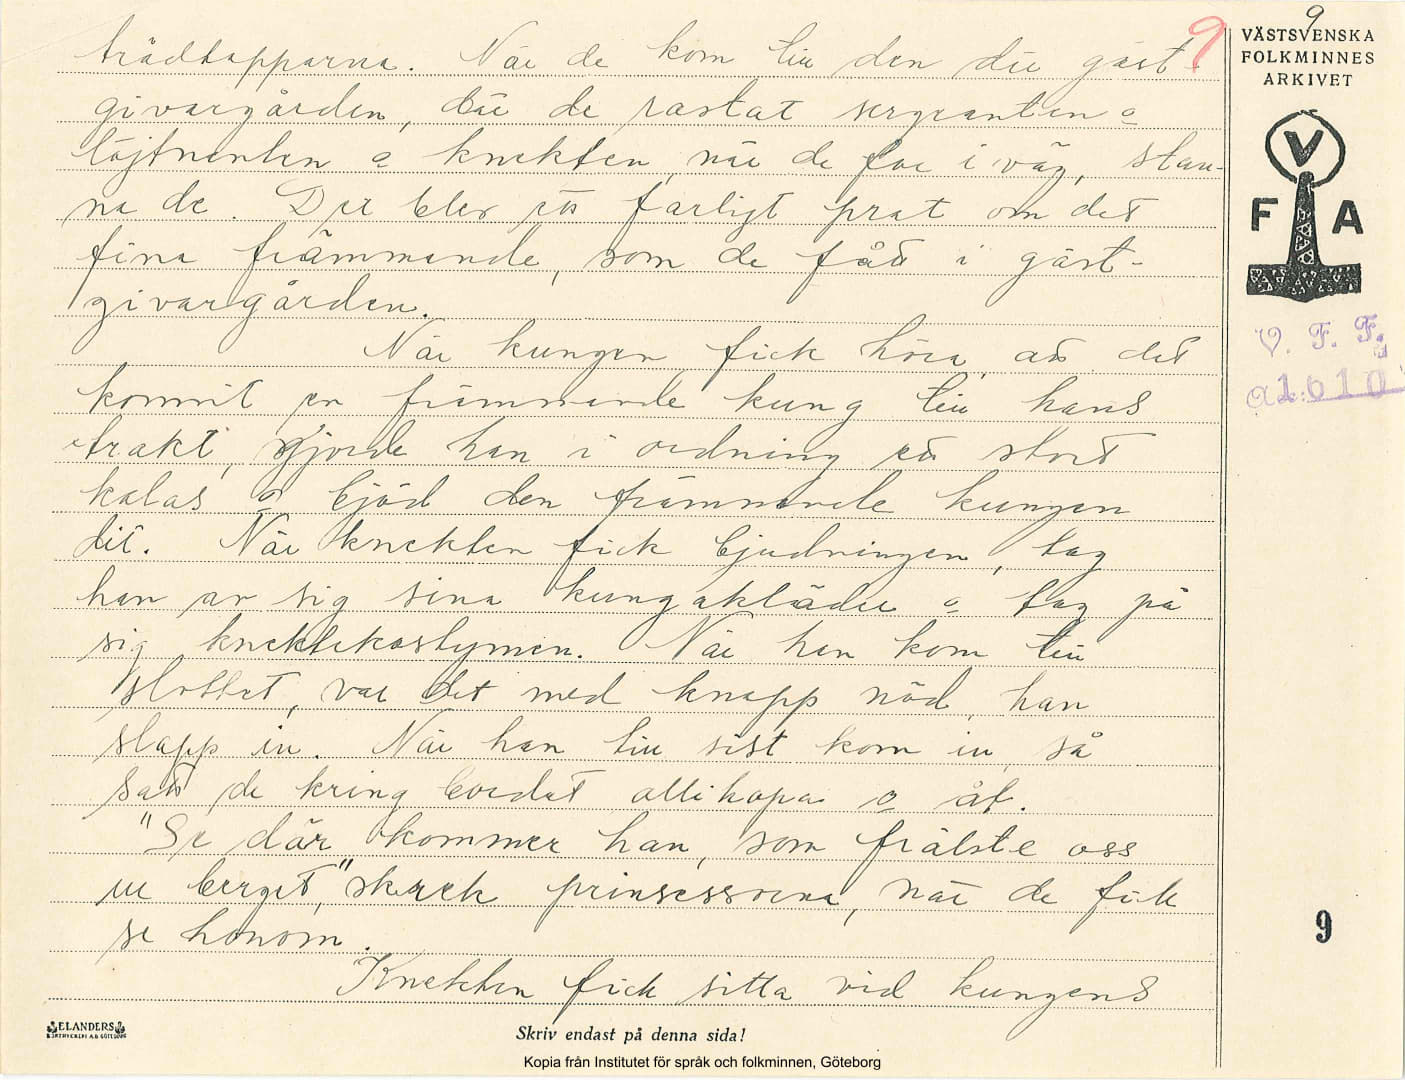 trädtapparna. När de kom till den där gäst-
givargården, där de rastat sergeanten o
löjtnanten o knekten, när de for i väg, stan-
na de. Der blev ett farligt prat om det
fina främmande, som de fått i gäst-
givargården.
När kungen fick höra, att det
kommit en främmande kung till hans
trakt, gjorde han i ordning ett stort
kalas o bjöd den främmande kungen
dit. När knekten fick bjudningen, tog
han av sig sina kungakläder o tog på
sig knektekostymen. När han kom till
slottet, var det med knapp nöd, han
slapp in. När han till sist kom in, så
satt de kring bordet allihopa o åt.
"Se där kommer han, som frälste oss
ur berget," skrek prinsessorna, när de fick
se honom.
Knekten fick sitta vid kungens
9
9
VÄSTSVENSKA
FOLKMINNES
ARKIVET
V
F A
V. F. F.
a1:610
9
ELANDERS
BOKTRYCKERI A.B. GÖTEBORG
Skriv endast på denna sida!
Kopia från Institutet för språk och folkminnen, Göteborg